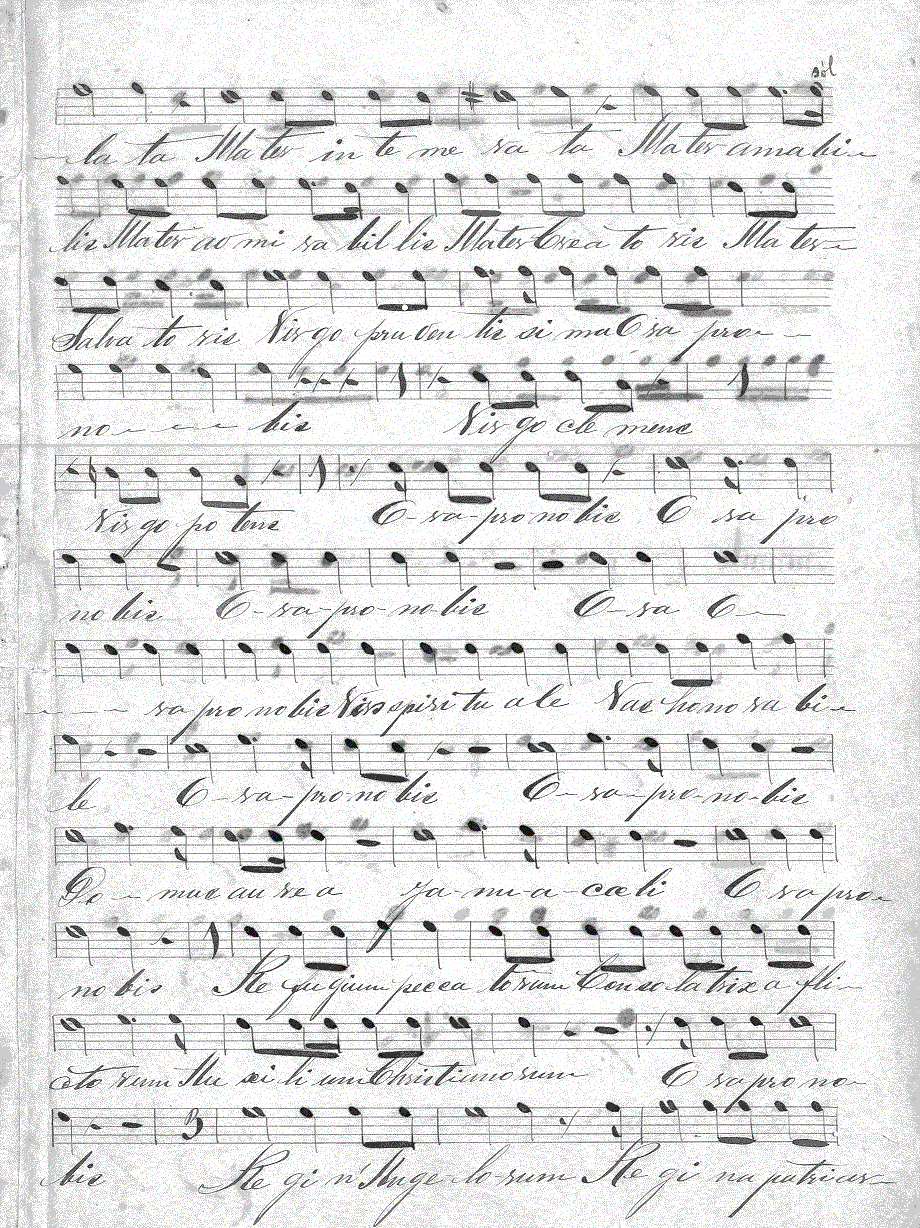 sol
la ta Mater in te me ra ta Mater amabi-
lis Mater ad mi ra bil lis Mater Crea to ris Mater-
Salva to ris Virgo pru den tis si ma O ra pro-
no - - - bis Virgo cle mens
Virgo po tens O-ra-pro no bis O ra pro
no bis O-ra-pro-no-bis O-ra O-
- - - ra pro no bis Vas spiri tu ale Vas hono ra bi-
le O-ra-pro-no bis O-ra-pro-no-bis
Do- mus au re a Ja-nu-a-cœli O ra pro-
no bis Re fugium pecca torum Conso latrix a fli-
cto rum Au xi li um Christianorum O ra pro no-
3
bis Re gi n'Ange lo-rum Re gi na patriar-